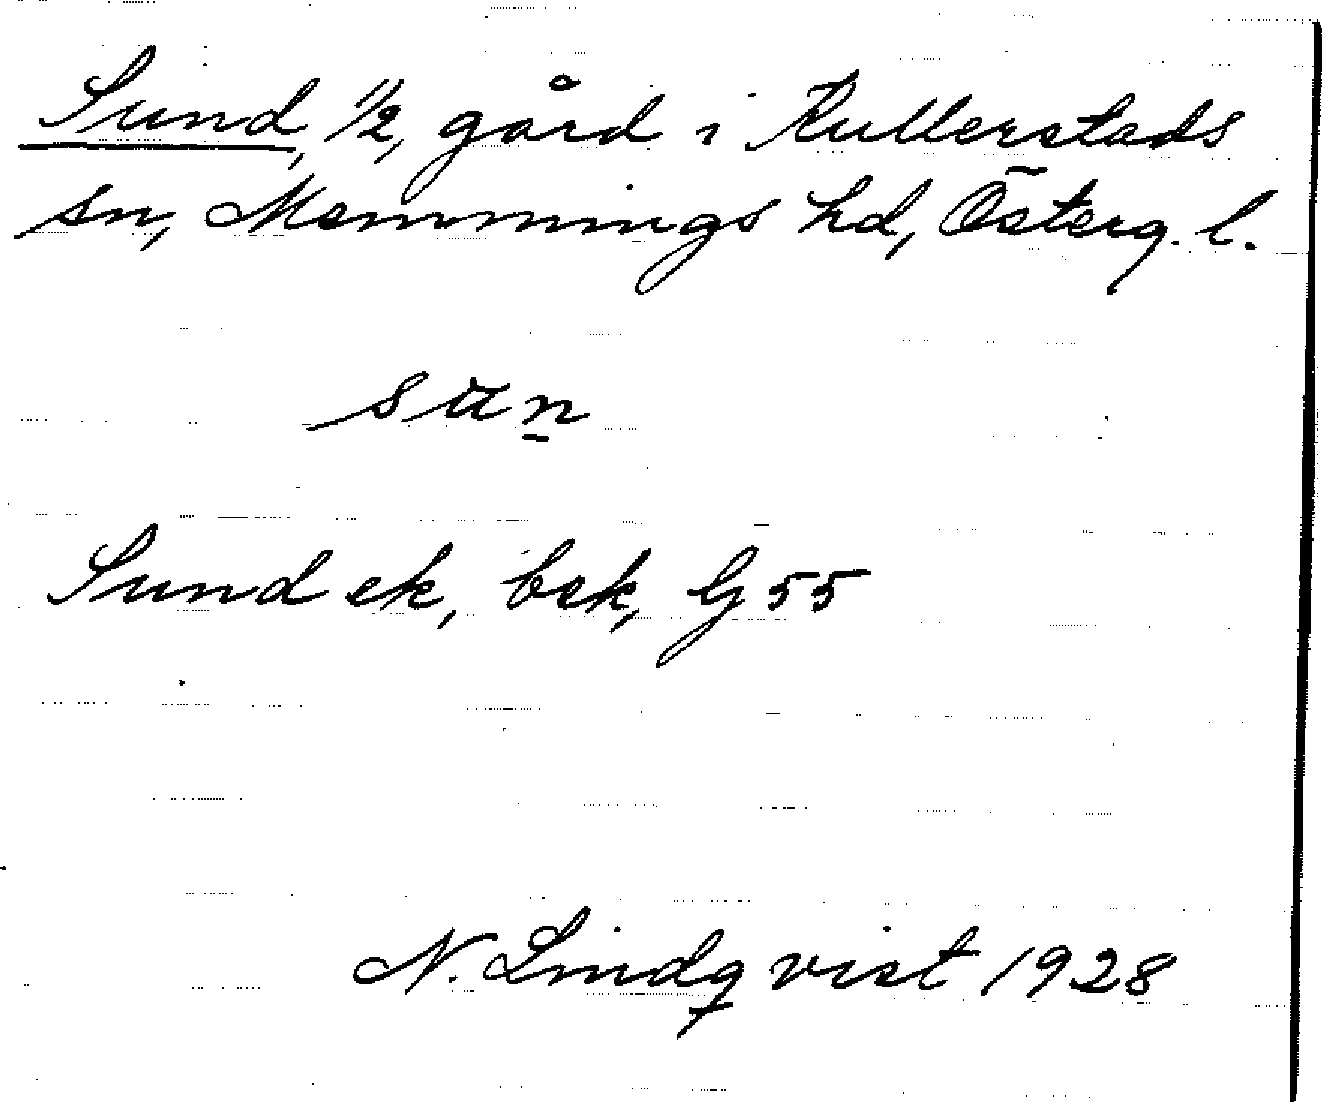 Sund, 1/2, gård i Kullerstads
sn, Memmings hd, Österg. l.
sun̲
Sund ek, bek, G 55
N. Lindqvist 1928